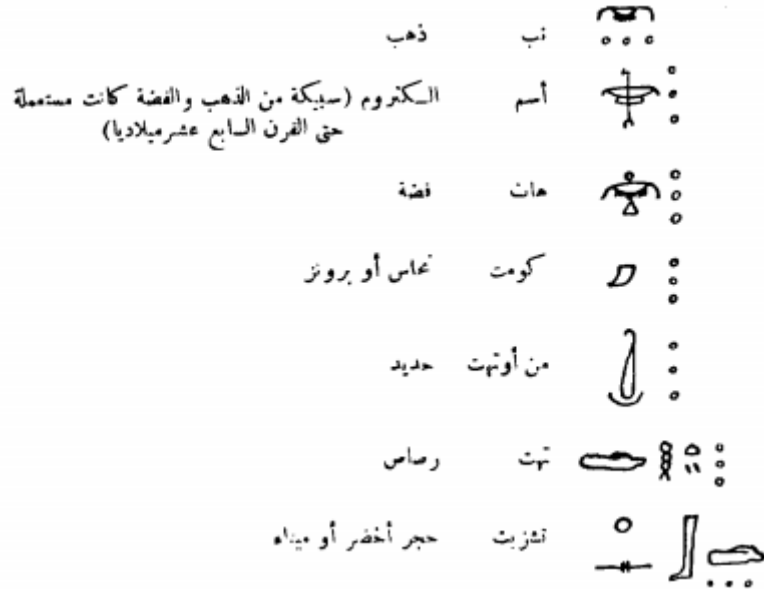 نب ذهب
أسم الكتروم (سبيكة من الذهب والفضة كانت مستعملة
حتى القرن السابع عشر ميلاديا)
هات فضة
كومت نحاس أو برونز
من أوتهت حديد
تهت رصاص
تشزبت حجر أخضر أو ميناء